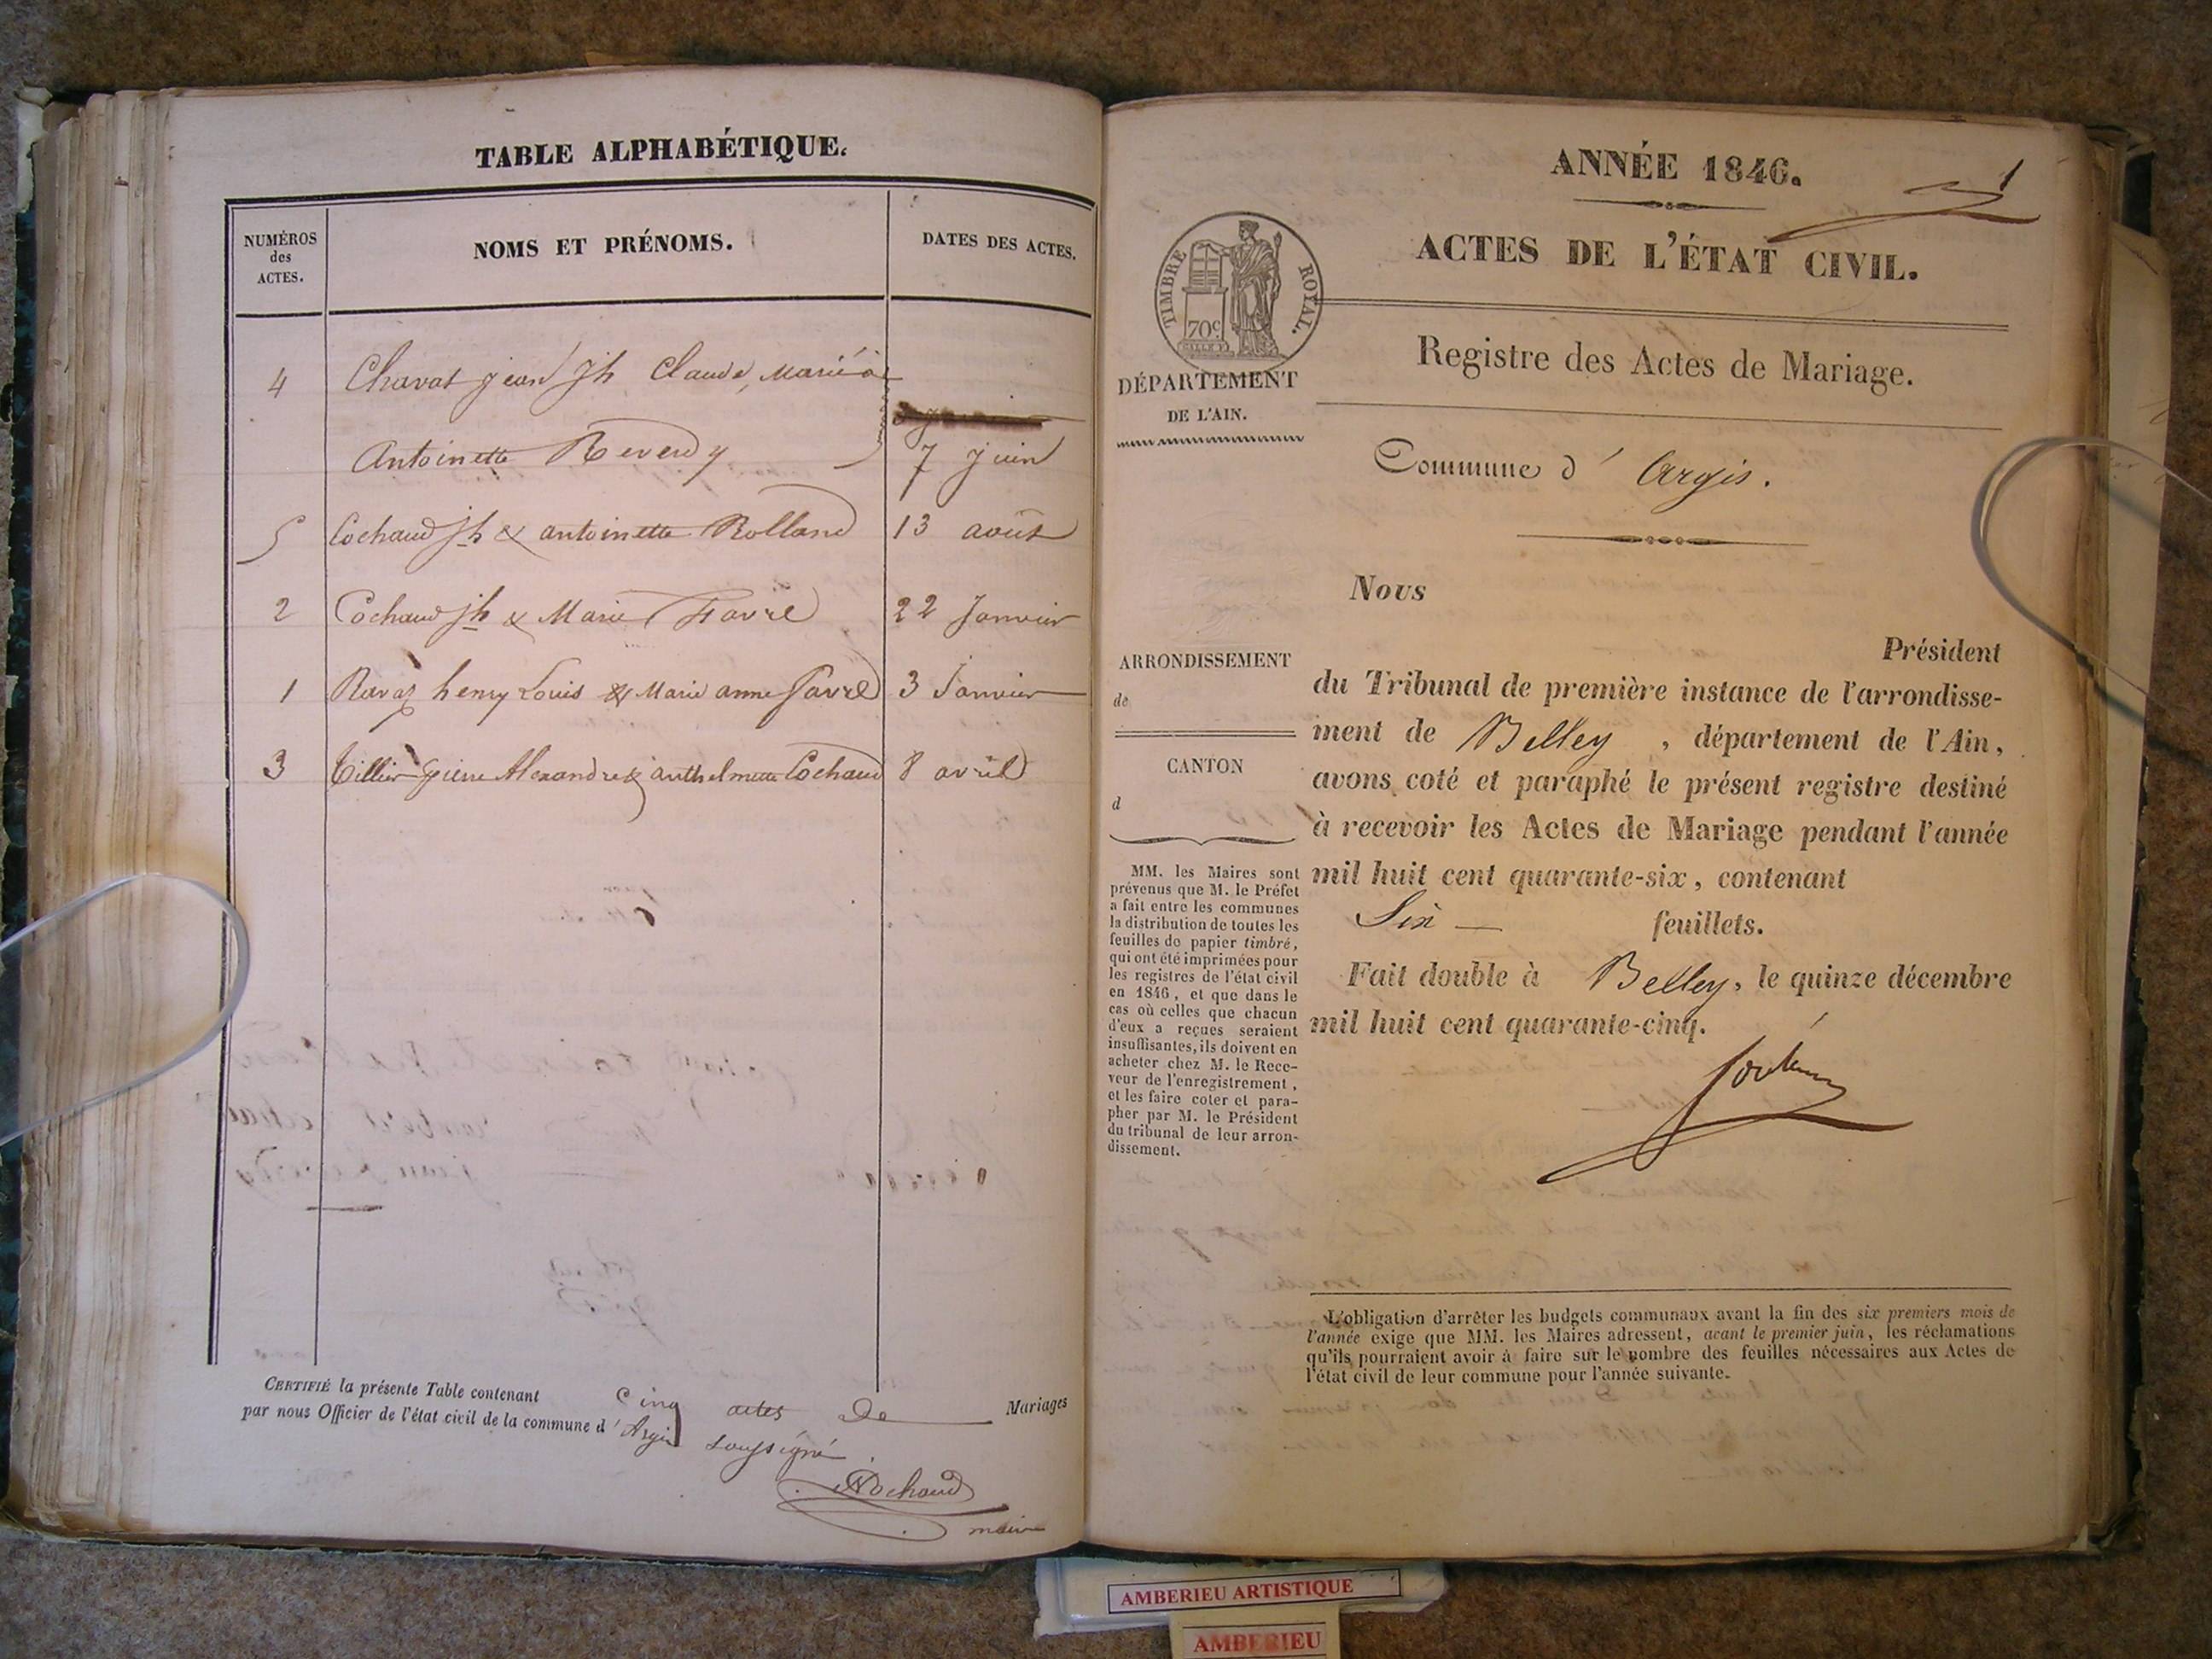 TABLE ALPHABÉTIQUE.
NUMÉROS
des
ACTES.
NOMS ET PRÉNOMS.
DATES DES ACTES.
4 Chavat jean Jh Claude, Marié à
Antoinette Reverdy 7 juin
5 Cochaud jh & antoinette Rolland 13 août
2 Cochaud jh & Marie Favre 22 Janvier
1 Ravaz henry Louis & Marie anne favre 3 Janvier
3 Tillier pierre Alexandre & anthelmette Cochaud 8 avril
CERTIFIÉ la présente Table contenant Cinq actes De Mariages
par nous Officier de l'état civil de la commune d' Argis soussigné
Cochaud
maire
ANNÉE 1846.
1
ACTES DE L'ÉTAT CIVIL.
TIMBRE ROYAL.
70c
DÉPARTEMENT
DE L'AIN.
Registre des Actes de Mariage.
Commune d' Argis.
Nous
Président
du Tribunal de première instance de l'arrondisse-
ment de Belley, département de l'Ain,
avons coté et paraphé le présent registre destiné
à recevoir les Actes de Mariage pendant l'année
mil huit cent quarante-six, contenant
Six feuillets.
Fait double à Belley, le quinze décembre
mil huit cent quarante-cinq.
ARRONDISSEMENT
de
CANTON
d
MM. les Maires sont
prévenus que M. le Préfet
a fait entre les communes
la distribution de toutes les
feuilles de papier timbré,
qui ont été imprimées pour
les registres de l'état civil
en 1846, et que dans le
cas où celles que chacun
d'eux a reçues seraient
insuffisantes, ils doivent en
acheter chez M. le Rece-
veur de l'enregistrement,
et les faire coter et para-
pher par M. le Président
du tribunal de leur arron-
dissement.
L'obligation d'arrêter les budgets communaux avant la fin des six premiers mois de
l'année exige que MM. les Maires adressent, avant le premier juin, les réclamations
qu'ils pourraient avoir à faire sur le nombre des feuilles nécessaires aux Actes de
l'état civil de leur commune pour l'année suivante.
AMBERIEU ARTISTIQUE
AMBERIEU